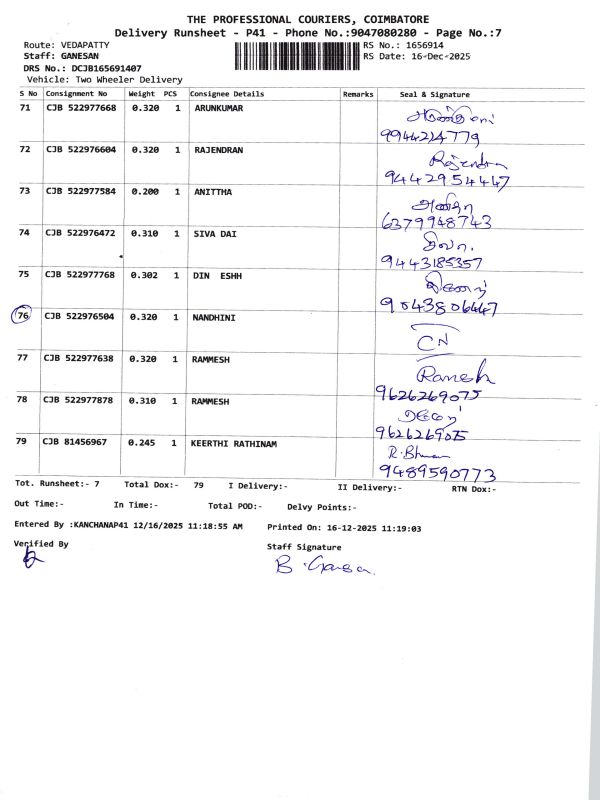 THE PROFESSIONAL COURIERS, COIMBATORE
Delivery Runsheet - P41 - Phone No.:9047080280 - Page No.:7
Route: VEDAPATTY RS No.: 1656914
Staff: GANESAN RS Date: 16-Dec-2025
DRS No.: DCJB165691407
Vehicle: Two Wheeler Delivery
S No Consignment No Weight PCS Consignee Details Remarks Seal & Signature
71 CJB 522977668 0.320 1 ARUNKUMAR
9944214779
72 CJB 522976604 0.320 1 RAJENDRAN Rajendran
9442954447
73 CJB 522977584 0.200 1 ANITTHA அனிதா
6379948743
74 CJB 522976472 0.310 1 SIVA DAI சிவா.
9443185357
75 CJB 522977768 0.302 1 DIN ESHH
9043806447
76 CJB 522976504 0.320 1 NANDHINI CN
77 CJB 522977638 0.320 1 RAMMESH Ramesh
9626269075
78 CJB 522977878 0.310 1 RAMMESH ரமேஷ்
9626269075
79 CJB 81456967 0.245 1 KEERTHI RATHINAM
9489590773
Tot. Runsheet:- 7 Total Dox:- 79 I Delivery:- II Delivery:- RTN Dox:-
Out Time:- In Time:- Total POD:- Delvy Points:-
Entered By :KANCHANAP41 12/16/2025 11:18:55 AM Printed On: 16-12-2025 11:19:03
Verified By Staff Signature